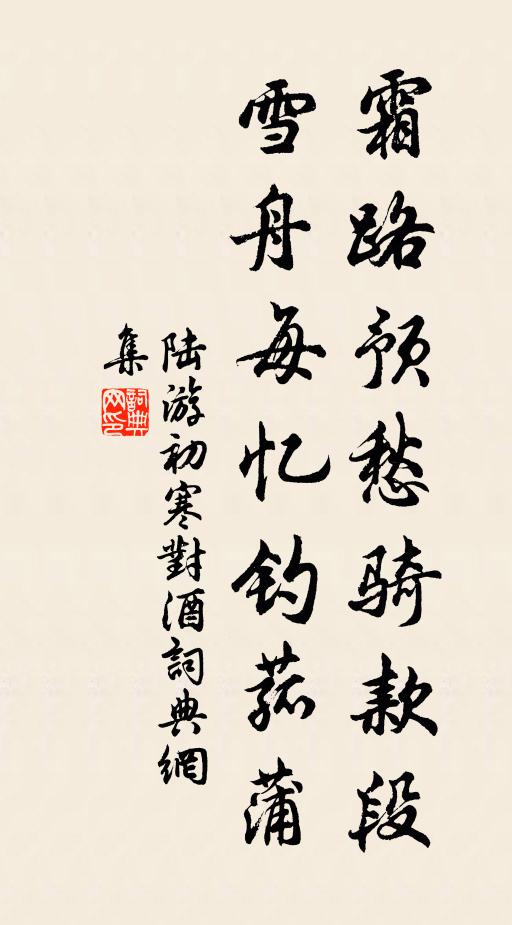 霜路预愁骑款段
雪舟每忆钓菰蒲
陆游初寒對酒詞典網
集
詞典網印